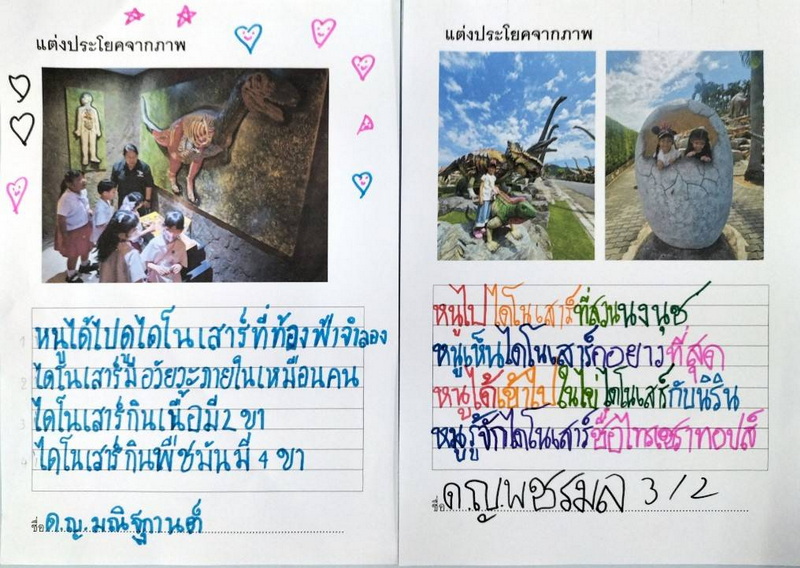 แต่งประโยคจากภาพ
หนูได้ไปดูไดโนเสาร์ที่ท้องฟ้าจำลอง
ไดโนเสาร์มีอวัยวะภายในเหมือนคน
ไดโนเสาร์กินเนื้อมี 2 ขา
ไดโนเสาร์กินพืชมันมี 4 ขา
ชื่อ ด.ญ. มณิฐกานต์
แต่งประโยคจากภาพ
หนูไปไดโนเสาร์ที่สวนนงนุช
หนูเห็นไดโนเสาร์คอยาวที่สุด
หนูได้เข้าไปในไข่ไดโนเสาร์กับนิริน
หนูรู้จักไดโนเสาร์ชื่อไทรเซราทอปส์
ชื่อ ด.ญ. พชรมล 3/2